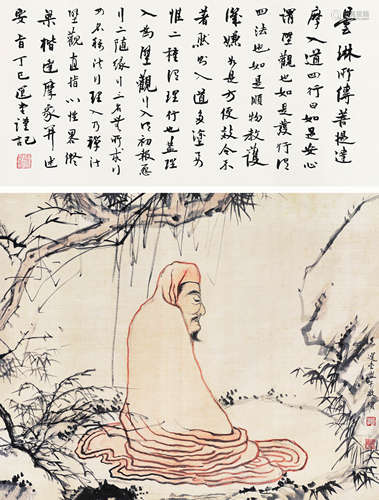 曇琳所傳菩提達
摩入道四行曰如是安心
謂壁觀也如是發行謂
四法也如是順物教護
譏嫌如是方便教令不
著然則入道多塗要
惟二種謂理行也
入為壁觀行入以初報怨
行二隨緣行三名無所求行
四名稱法行理入乃禪法
壁觀直指心性
梁楷達摩象并述
安旨丁巳選堂謹記